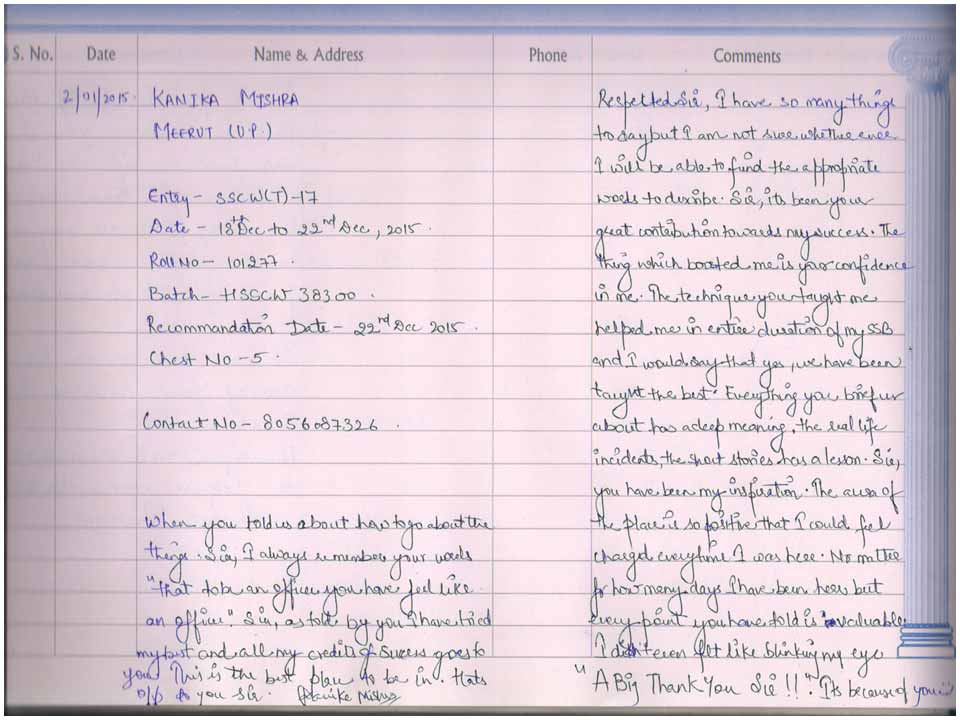 S. No. Date Name & Address Phone Comments
2/01/2015. KANIKA MISHRA
MEERUT (U.P.)
Entry - SSCW(T)-17
Date - 18th Dec to 22nd Dec, 2015.
Roll No - 101277.
Batch - HSSCW 38300.
Recommandation Date - 22nd Dec 2015.
Chest No - 5.
Contact No - 8056087326.
Respected Sir, I have so many things
to say but I am not sure whether
I will be able to find the appropriate
words to describe. Sir, its been your
great contribution towards my success. The
thing which boosted me is your confidence
in me. The technique you taught me
helped me in entire duration of my SSB
and I would say that yes, we have been
taught the best. Everything you brief us
about has a deep meaning, the real life
incidents, the short stories has a lesson. Sir,
you have been my inspiration. The aura of
the place is so positive that I could feel
charged everytime I was here. No matter
for how many days I have been here but
every point you have told is invaluable
I didn't even felt like blinking my eye
when you told us about how to go about the
things. Sir, I always remember your words
"that to be an officer you have feel like
an officer". Sir, as told by you I have tried
my best and all my credit of success goes to
you. This is the best place to be in. Hats
off to you Sir. Kanika Mishra
"A Big Thank You Sir!!". Its because of you :)